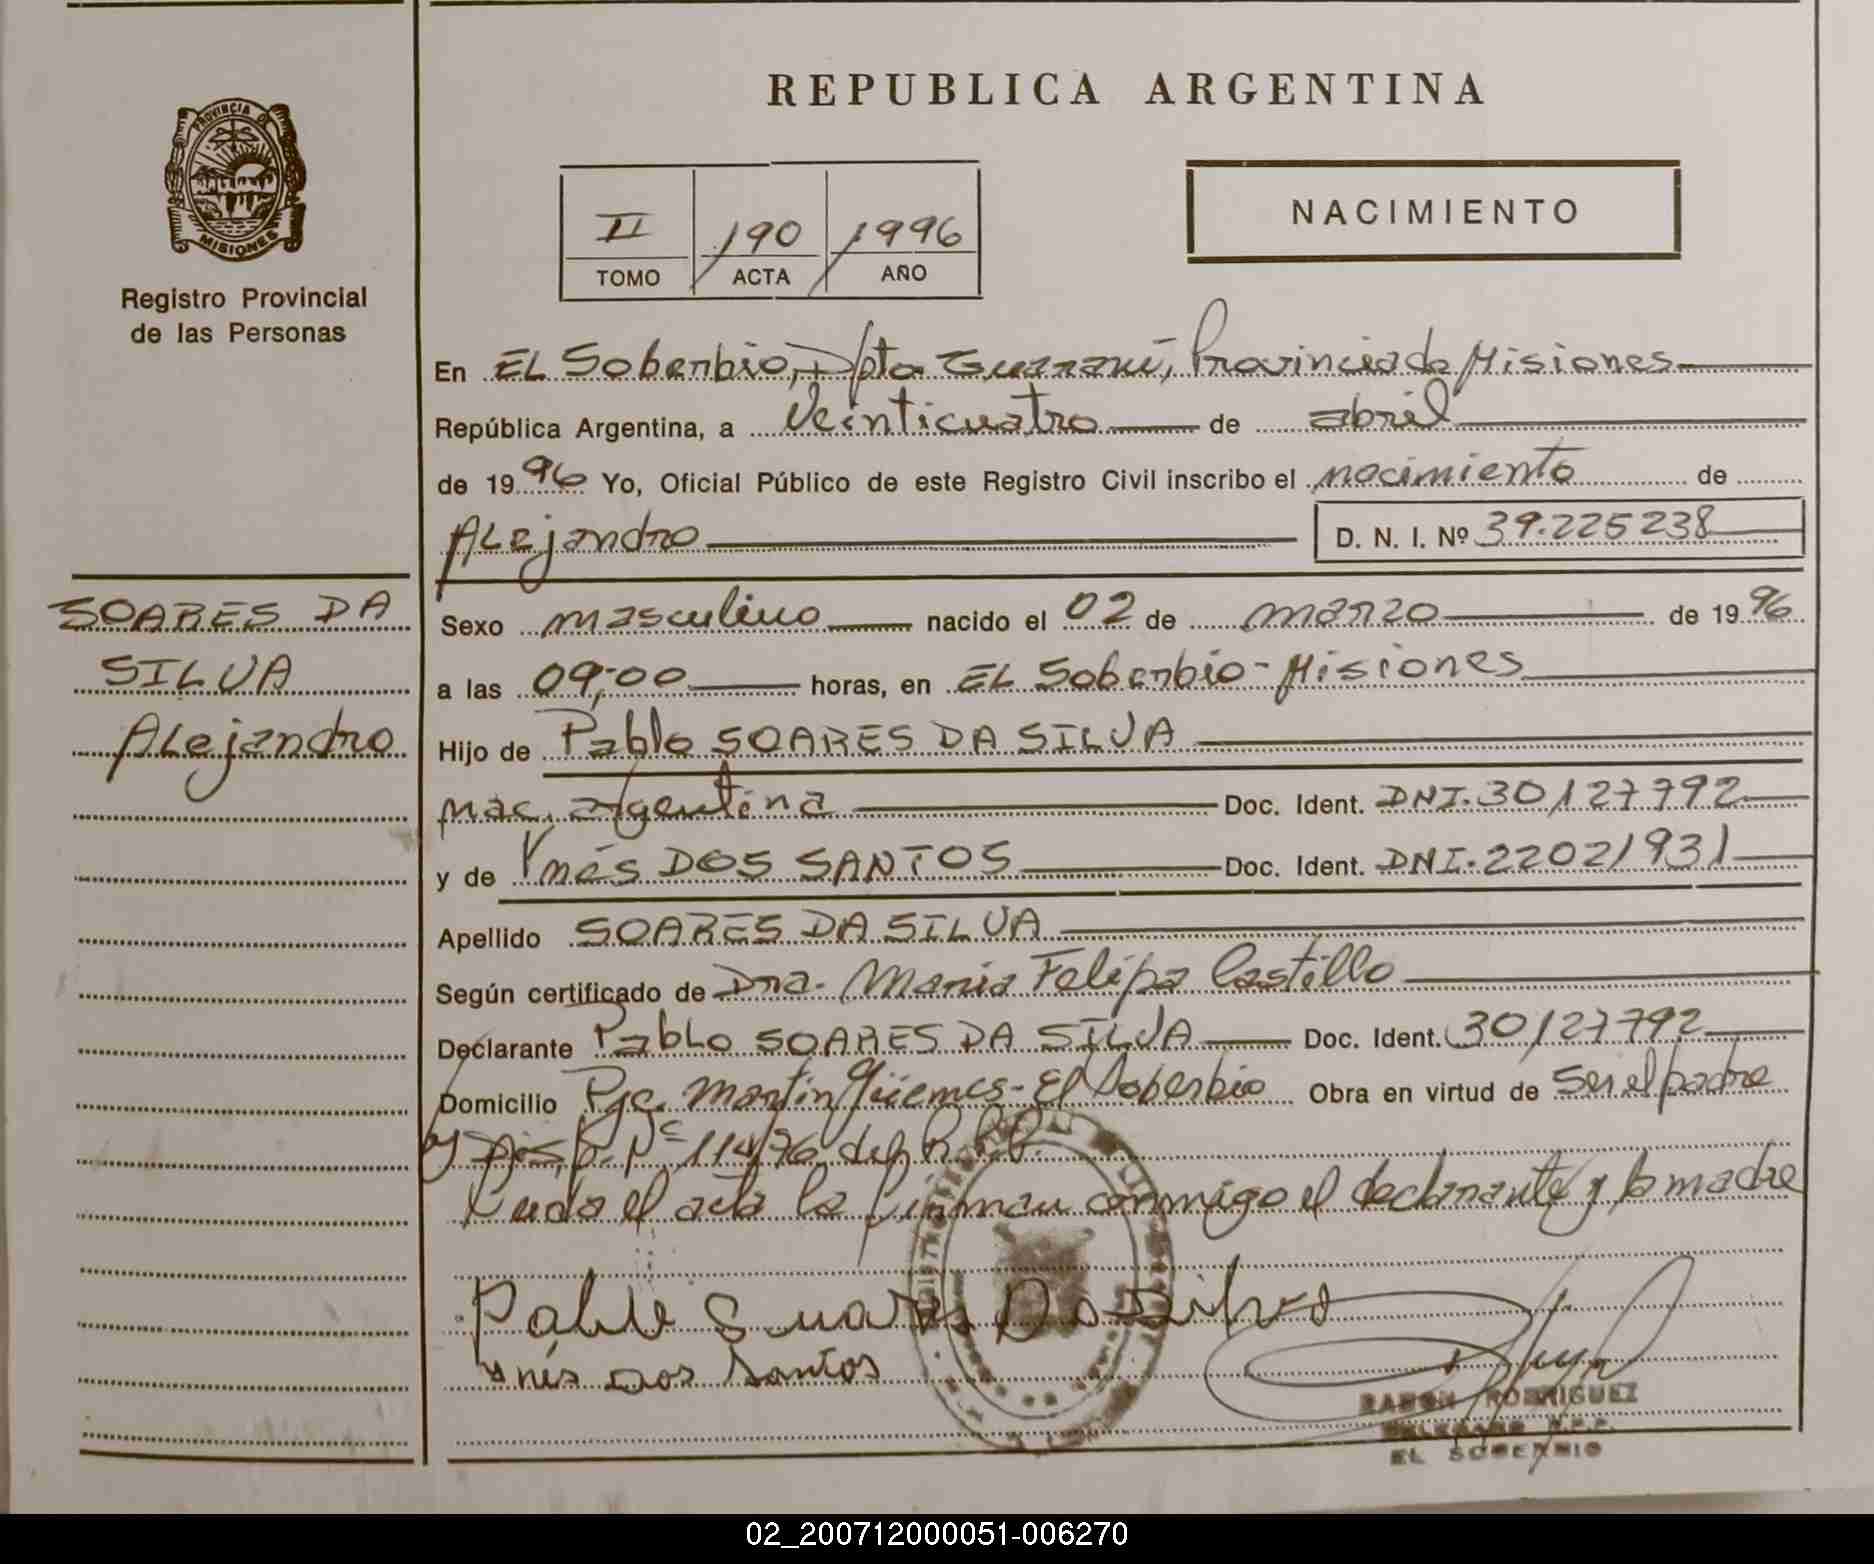 REPUBLICA ARGENTINA
PROVINCIA DE
MISIONES
Registro Provincial
de las Personas
II 190 1996
TOMO ACTA AÑO
NACIMIENTO
En EL Soberbio, Dpto Guaraní, Provincia de Misiones
República Argentina, a Veinticuatro de abril
de 1996 Yo, Oficial Público de este Registro Civil inscribo el nacimiento de
Alejandro D. N. I. Nº 39.225238
SOARES DA
SILVA
Alejandro
Sexo masculino nacido el 02 de marzo de 1996
a las 09,00 horas, en EL Soberbio - Misiones
Hijo de Pablo SOARES DA SILVA
nac. argentina Doc. Ident. DNI. 30127792
y de Ynés DOS SANTOS Doc. Ident. DNI. 22021931
Apellido SOARES DA SILVA
Según certificado de Dra. Maria Felipa Castillo
Declarante PabLo SOARES DA SILVA Doc. Ident. 30127792
Domicilio Pje. Martin Güemes - El Soberbio Obra en virtud de ser el padre
y Disp. Nº 114/96 del R.P.P.
Leida el acta la firman conmigo el declarante y la madre
Ynés Dos Santos
RAMON RODRIGUEZ
DELEGADO R.P.P.
EL SOBERBIO
02_200712000051-006270